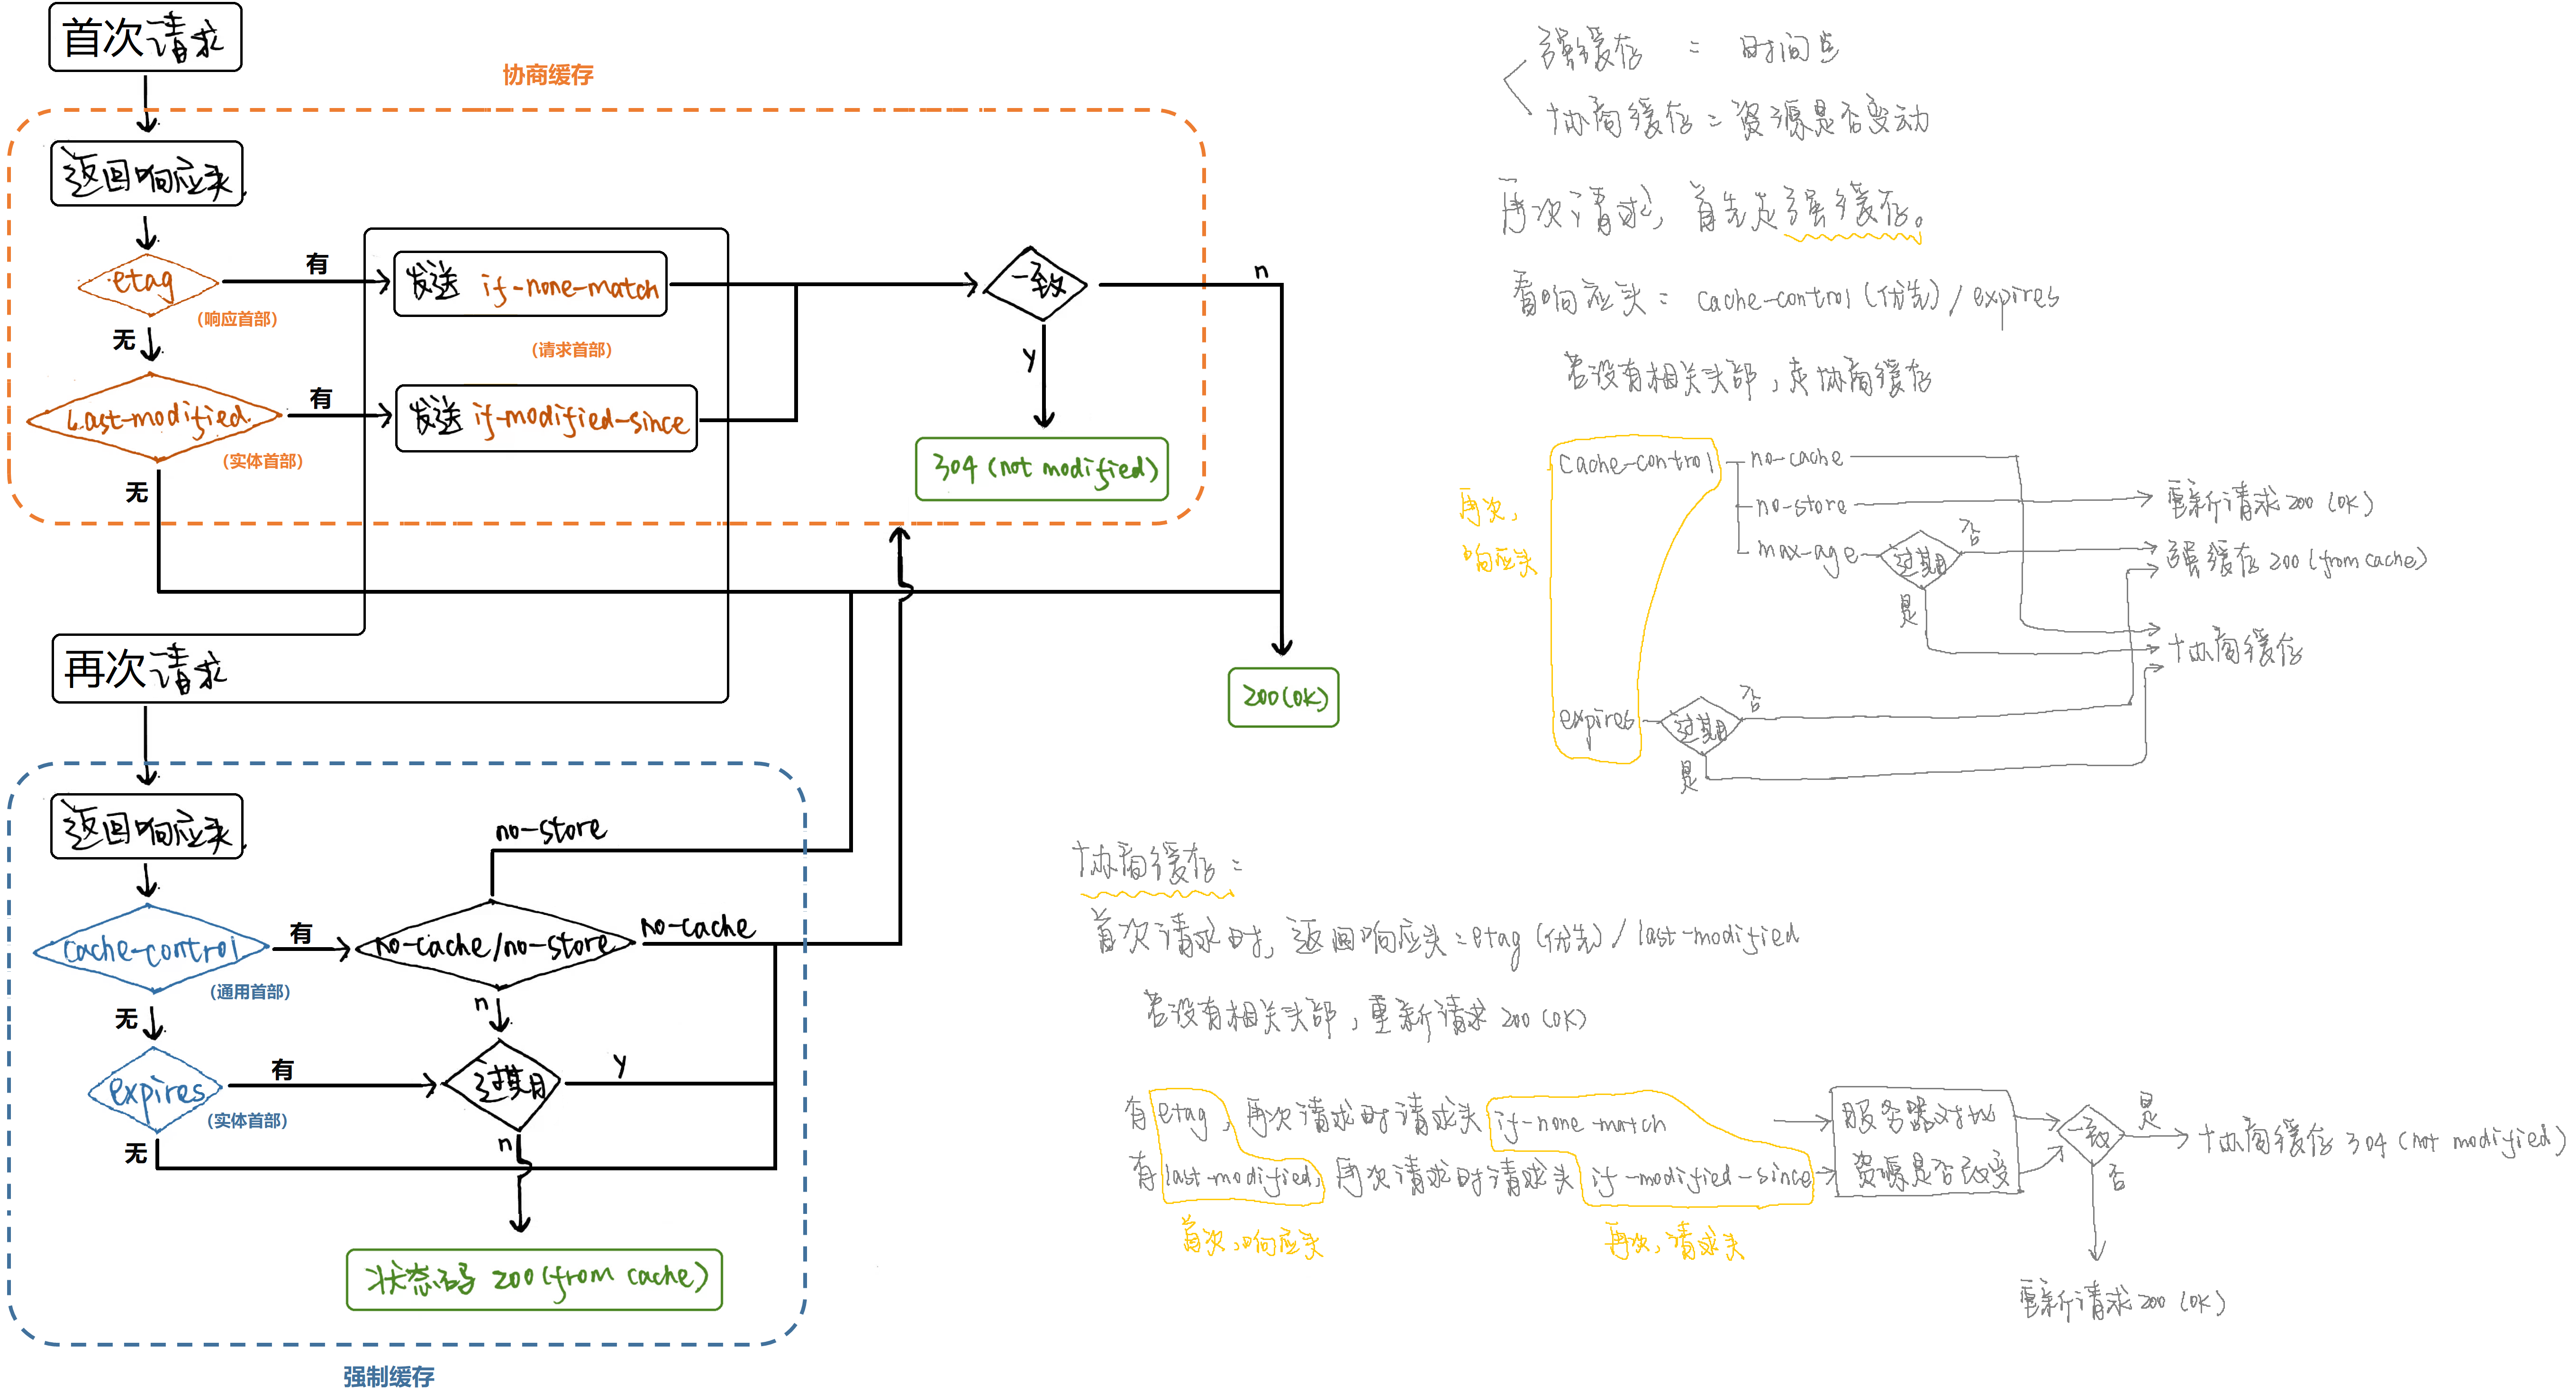 首次请求
协商缓存
返回响应头
etag
有
发送 if-none-match
一致
n
(响应首部)
无
(请求首部)
y
Last-modified
有
发送 if-modified-since
(实体首部)
304 (not modified)
无
再次请求
200 (OK)
返回响应头
no-store
cache-control
有
no-cache/no-store
no-cache
(通用首部)
无
n
expires
有
过期
y
(实体首部)
无
n
状态码 200 (from cache)
强制缓存
强缓存 : 时间
协商缓存: 资源是否变动
再次请求, 首先走强缓存。
看响应头: cache-control (优先) / expires
若没有相关头部, 走协商缓存
再次,
响应头
cache-control
no-cache
no-store
重新请求 200 (OK)
max-age
过期
否
强缓存 200 (from cache)
是
协商缓存
expires
过期
否
是
协商缓存:
首次请求时, 返回响应头: etag (优先) / last-modified
若没有相关头部, 重新请求 200 (OK)
有 etag, 再次请求时请求头 if-none-match
有 last-modified, 再次请求时请求头 if-modified-since
首次,响应头
再次, 请求头
服务器对比
资源是否改变
一致
是
协商缓存 304 (not modified)
否
重新请求 200 (OK)